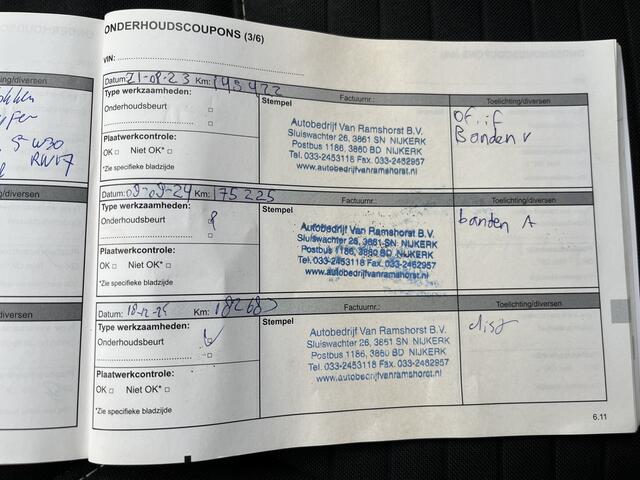 ONDERHOUDSCOUPONS (3/6)
VIN:
Toelichting/diversen
5 W30
Datum: 21-08-23 Km:
Type werkzaamheden:
Onderhoudsbeurt
Plaatwerkcontrole:
OK □ Niet OK* □
*Zie specifieke bladzijde
Stempel
Factuurnr.:
Autobedrijf Van Ramshorst B.V.
Sluiswachter 26, 3861 SN NIJKERK
Postbus 1186, 3860 BD NIJKERK
Tel. 033-2453118 Fax. 033-2462957
www.autobedrijfvanramshorst.nl
Toelichting/diversen
Banden V
Datum: 09-09-24 Km: 175225
Type werkzaamheden:
Onderhoudsbeurt
Plaatwerkcontrole:
OK □ Niet OK* □
*Zie specifieke bladzijde
Stempel
Factuurnr.:
Autobedrijf Van Ramshorst B.V.
Sluiswachter 26, 3861 SN NIJKERK
Postbus 1186, 3860 BD NIJKERK
Tel. 033-2453118 Fax. 033-2462957
www.autobedrijfvanramshorst.nl
Toelichting/diversen
banden A
Datum: Km:
Type werkzaamheden:
Onderhoudsbeurt
Plaatwerkcontrole:
OK □ Niet OK* □
*Zie specifieke bladzijde
Stempel
Factuurnr.:
Autobedrijf Van Ramshorst B.V.
Sluiswachter 26, 3861 SN NIJKERK
Postbus 1186, 3860 BD NIJKERK
Tel. 033-2453118 Fax. 033-2462957
www.autobedrijfvanramshorst.nl
Toelichting/diversen
6.11